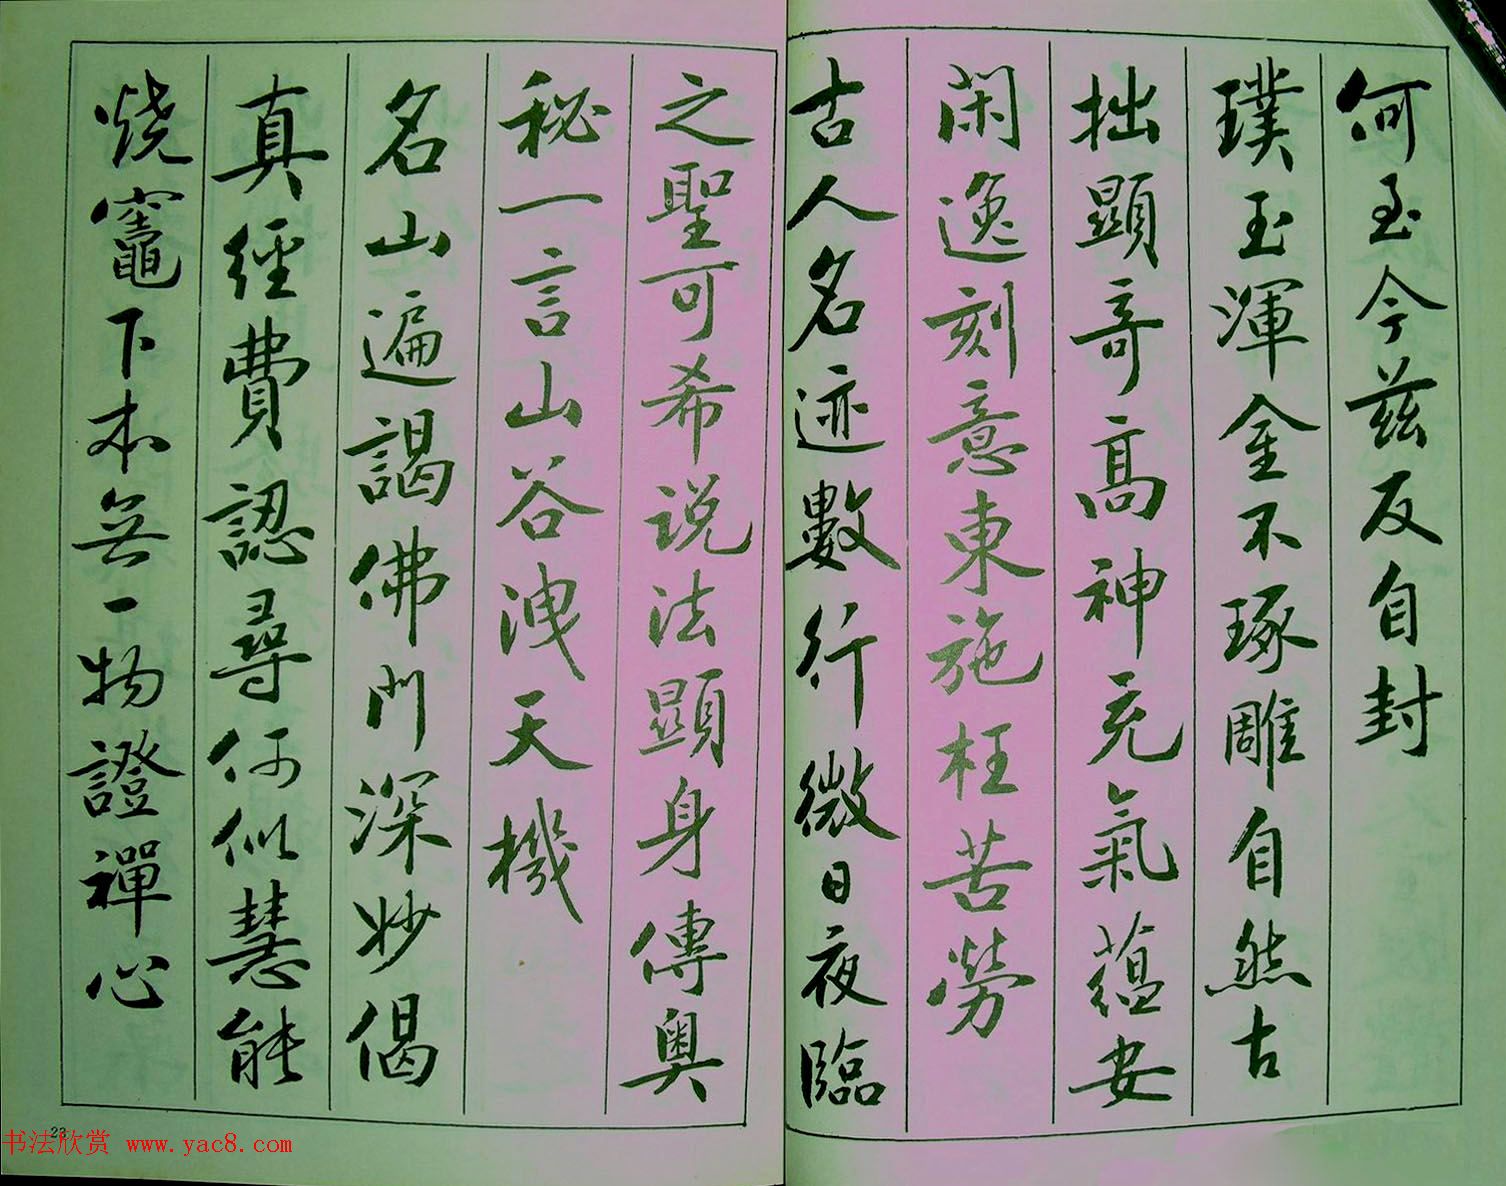 何至今兹反自封
璞玉渾金不琢雕自然古
拙顯奇高神充氣蕴安
闲逸刻意東施枉苦勞
古人名迹數行微日夜臨
之聖可希说法顯身傳奥
秘一言山谷洩天機
名山遍謁佛門深妙偈
真經費認尋何似慧能
燒竈下本無一物證禪心
23
书法欣赏 www.yac8.com